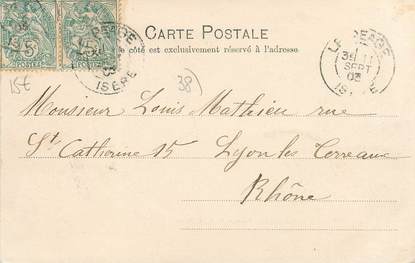 CARTE POSTALE
côté est exclusivement réservé à l'adresse.
LE PEAGE
SEPT
03
ISERE
PEAGE
03
ISERE
15€
38)
Monsieur Louis Mathieu rue
St Catherine 15 Lyon les Terreaux
Rhône